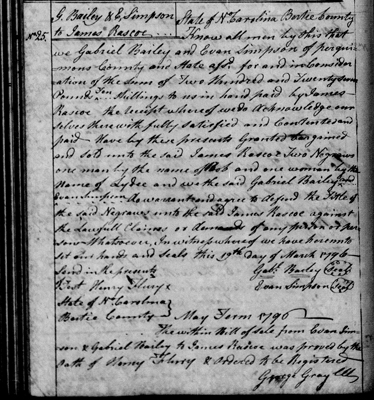 G. Bailey & E. Simpson State of No. Carolina Bertie County
No 25. to James Rascoe Know all men by this that
we Gabriel Bailey and Evan Simpson of perqui
mons County and State afsd. for and in Consider
ation of the Sum of Two Hundred and Twenty seven
Pound Ten Shillings to us in hand paid by James
Rascoe the Receipt whereof we do Acknowledge our
selves therewith fully Satisfied and Contented and
paid Have by these presents Granted bargained
and sold unto the said James Rascoe Two Negroes
one man by the name of Bob and one woman by the
Name of Lydee and we the said Gabriel Bailey and
Evan Simpson do warrant and agree to defend the Title of
the said Negroes unto the said James Rascoe against
the Lawfull Claims or demand of any person or per
sons Whatsoever, In witness whereof we have hereunto
set our hands and Seals this 19th day of March 1796
Send in the presents Gabl. Bailey (Seal)
Test Henry Flury Evan Simpson (Seal)
State of No. Carolina
Bertie County May Term 1796
The within Bill of Sale from Evan Sim
son & Gabriel Bailey to James Rascoe was proved by the
Oath of Henry Flury & Ordered to be Registered
George Gray